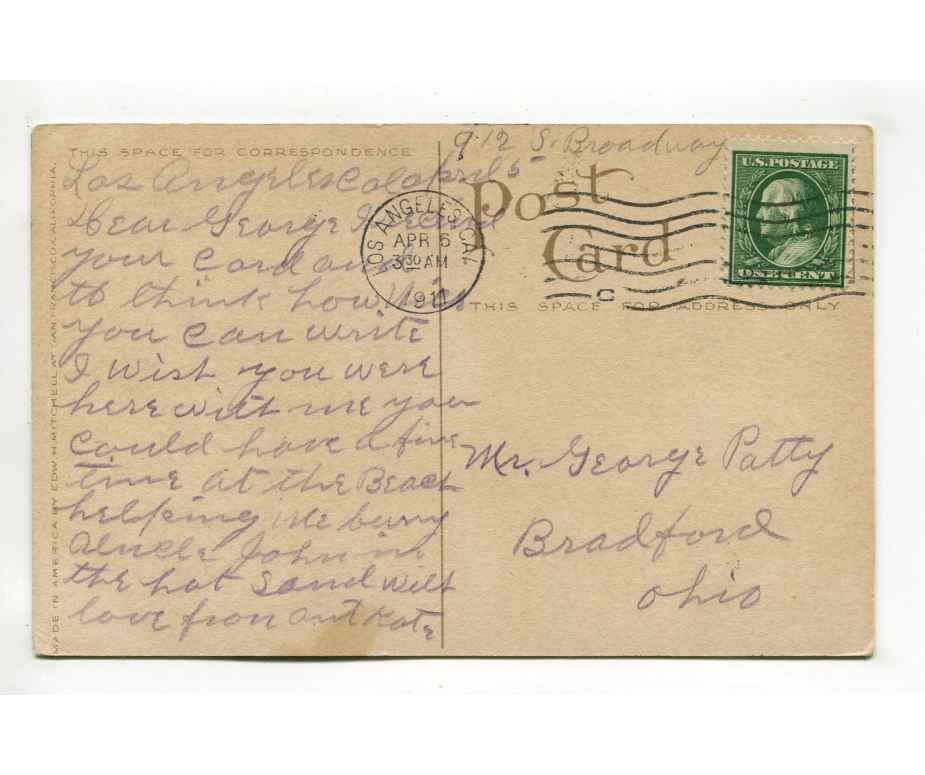 THIS SPACE FOR CORRESPONDENCE
912 S. Broadway
Los Angeles Cal April 5
Dear George I
your card and
to think how
you can write
I wish you were
here with me you
could have a fine
time at the Beach
helping me burry
Uncle John in
the hot sand with
love from Ant Kate
MADE IN AMERICA BY EDW H. MITCHELL AT SAN FRANCISCO, CALIFORNIA.
LOS ANGELES, CAL.
APR 6
3 30 AM
1911
C
Post
Card
THIS SPACE FOR ADDRESS ONLY
U.S. POSTAGE
ONE CENT
Mr. George Patty
Bradford
Ohio